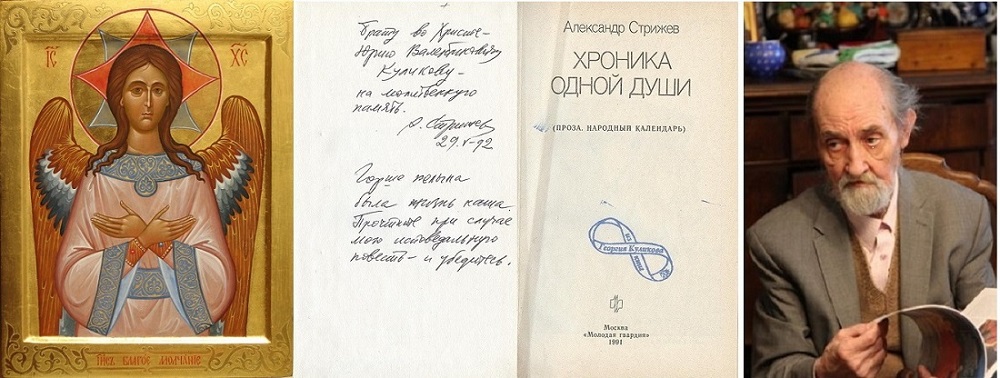 ІС ХС
БЛАГОЕ МОЛЧАНІЕ
Брату во Христе –
Юрию Валентиновичу
Куликову –
на молитвенную
память.
А. Стрижев
29.V-92
Горше полына
была жизнь наша.
Прочтите при случае
мою исповедальную
повесть – и убедитесь.
Александр Стрижев
ХРОНИКА
ОДНОЙ ДУШИ
(ПРОЗА. НАРОДНЫЙ КАЛЕНДАРЬ)
из книг
Георгия Куликова
Москва
«Молодая гвардия»
1991